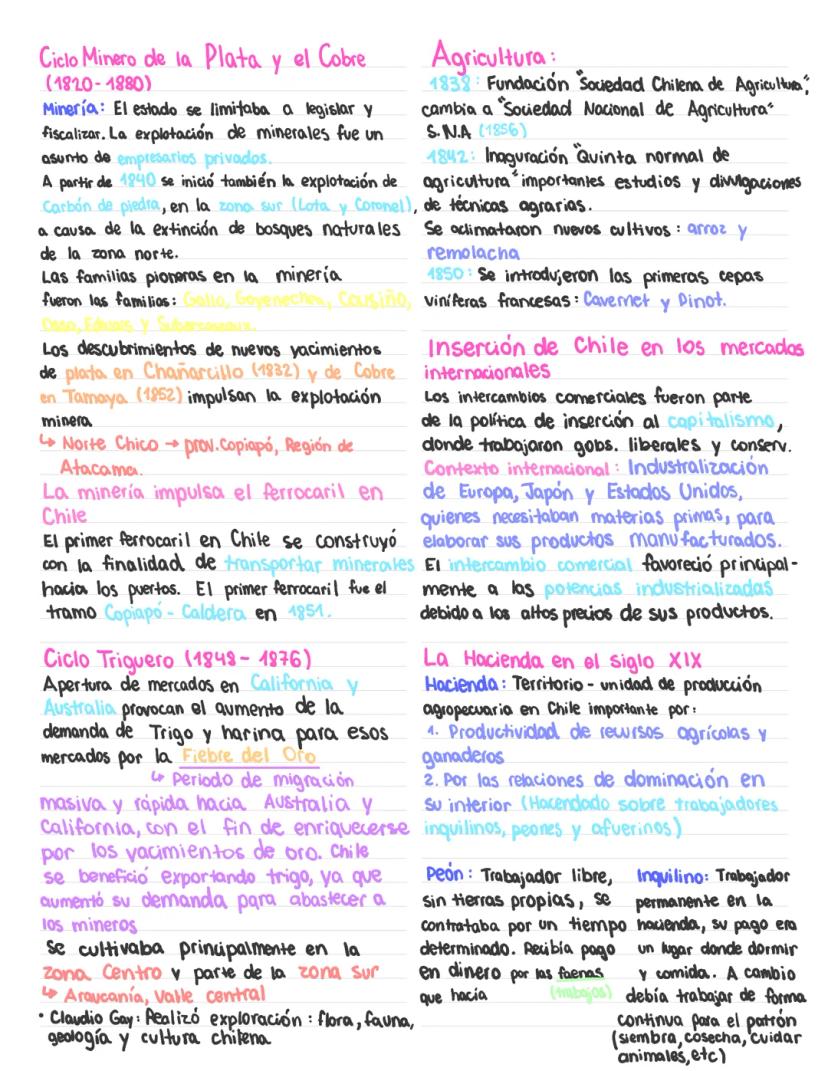 Ciclo Minero de la Plata y el Cobre
(1820-1880)
Minería: El estado se limitaba a legislar y
fiscalizar. La explotación de minerales fue un
asunto de empresarios privados.
A partir de 1840 se inició también la explotación de
Carbón de piedra, en la zona sur (Lota y Coronel),
a causa de la extinción de bosques naturales
de la zona norte.
Las familias pioneras en la minería
fueron las familias: Gallo, Goyenechea, Cousiño,
Ossa, Edwars y Subercaseaux.
Los descubrimientos de nuevos yacimientos
de plata en Chañarcillo (1832) y de Cobre
en Tamaya (1852) impulsan la explotación
minera
↳ Norte Chico → prov. Copiapó, Región de
Atacama.
La minería impulsa el ferrocaril en
Chile
El primer ferrocaril en Chile se construyó
con la finalidad de transportar minerales
hacia los puertos. El primer ferrocaril fue el
tramo Copiapó - Caldera en 1851.
Ciclo Triguero (1848- 1876)
Apertura de mercados en California y
Australia provocan el aumento de la
demanda de Trigo y harina para esos
mercados por la Fiebre del Oro
↳ Periodo de migración
masiva y rápida hacia Australia y
California, con el fin de enriquecerse
por los yacimientos de oro. Chile
se benefició exportando trigo, ya que
aumentó su demanda para abastecer a
los mineros
Se cultivaba principalmente en la
zona Centro y parte de la zona sur
↳ Araucanía, Valle central
• Claudio Gay: Realizó exploración: flora, fauna,
geología y cultura chilena
Agricultura:
1838: Fundación "Sociedad Chilena de Agricultura",
cambia a "Sociedad Nacional de Agricultura"
S.N.A (1856)
1842: Inaguración "Quinta normal de
agricultura" importantes estudios y divulgaciones
de técnicas agrarias.
Se aclimataron nuevos cultivos: arroz y
remolacha
1850: Se introdujeron las primeras cepas
viníferas francesas: Cavernet y Pinot.
Inserción de Chile en los mercados
internacionales
Los intercambios comerciales fueron parte
de la política de inserción al capitalismo,
donde trabajaron gobs. liberales y conserv.
Contexto internacional: Industralización
de Europa, Japón y Estados Unidos,
quienes necesitaban materias primas, para
elaborar sus productos manufacturados.
El intercambio comercial favoreció principal-
mente a las potencias industrializadas
debido a los altos precios de sus productos.
La Hacienda en el siglo XIX
Hacienda: Territorio - unidad de producción
agropecuaria en Chile importante por:
1. Productividad de recursos agrícolas y
ganaderos
2. Por las relaciones de dominación en
su interior (Hacendado sobre trabajadores
inquilinos, peones y afuerinos)
Peón: Trabajador libre,
sin tierras propias, se
contrataba por un tiempo
determinado. Recibía pago
en dinero por las faenas
que hacía (trabajos)
Inquilino: Trabajador
permanente en la
hacienda, su pago era
un lugar donde dormir
y comida. A cambio
debía trabajar de forma
continua para el patrón
(siembra, cosecha, cuidar
animales, etc)